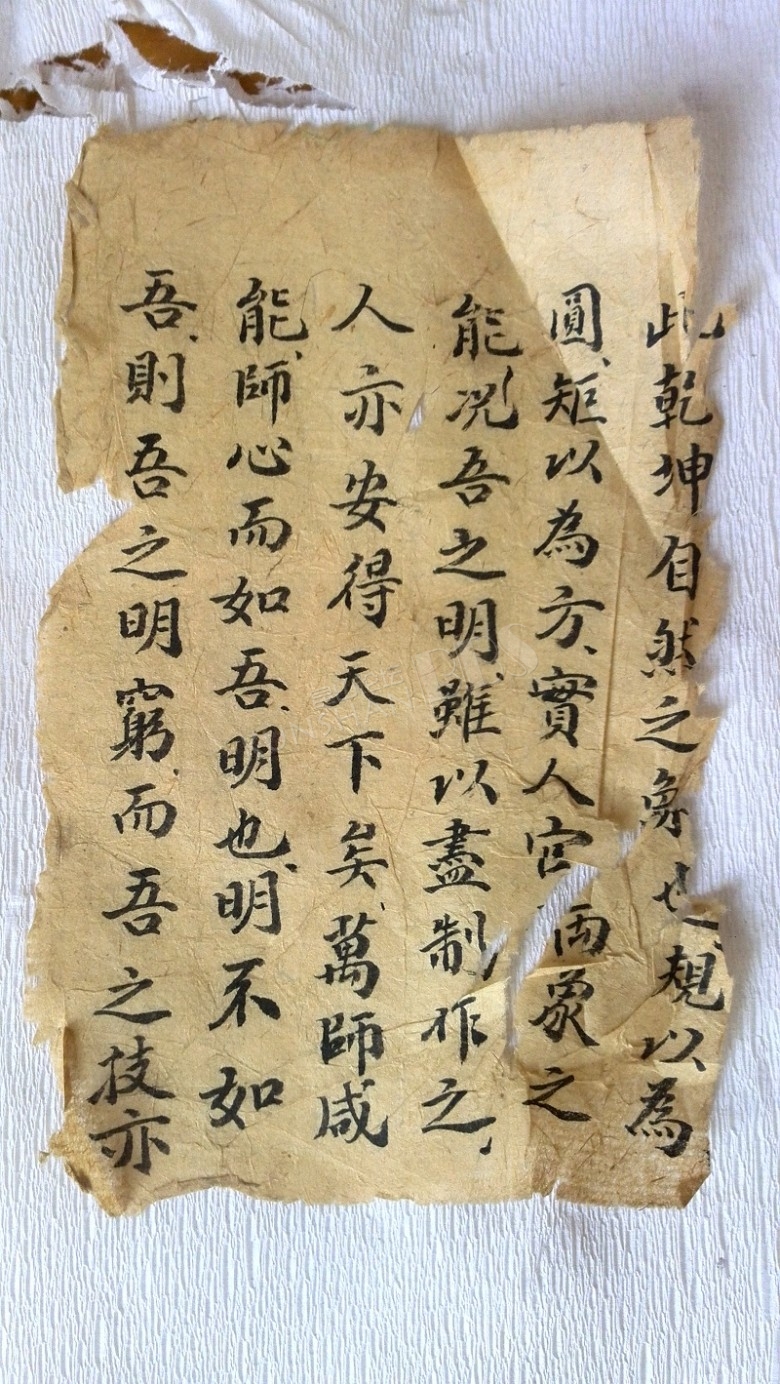 此乾坤自然之象也規以為
圓矩以為方實人官兩象之
能況吾之明雖以盡制作之
人亦安得天下矣萬師咸
能師心而如吾明也明不如
吾則吾之明窮而吾之技亦